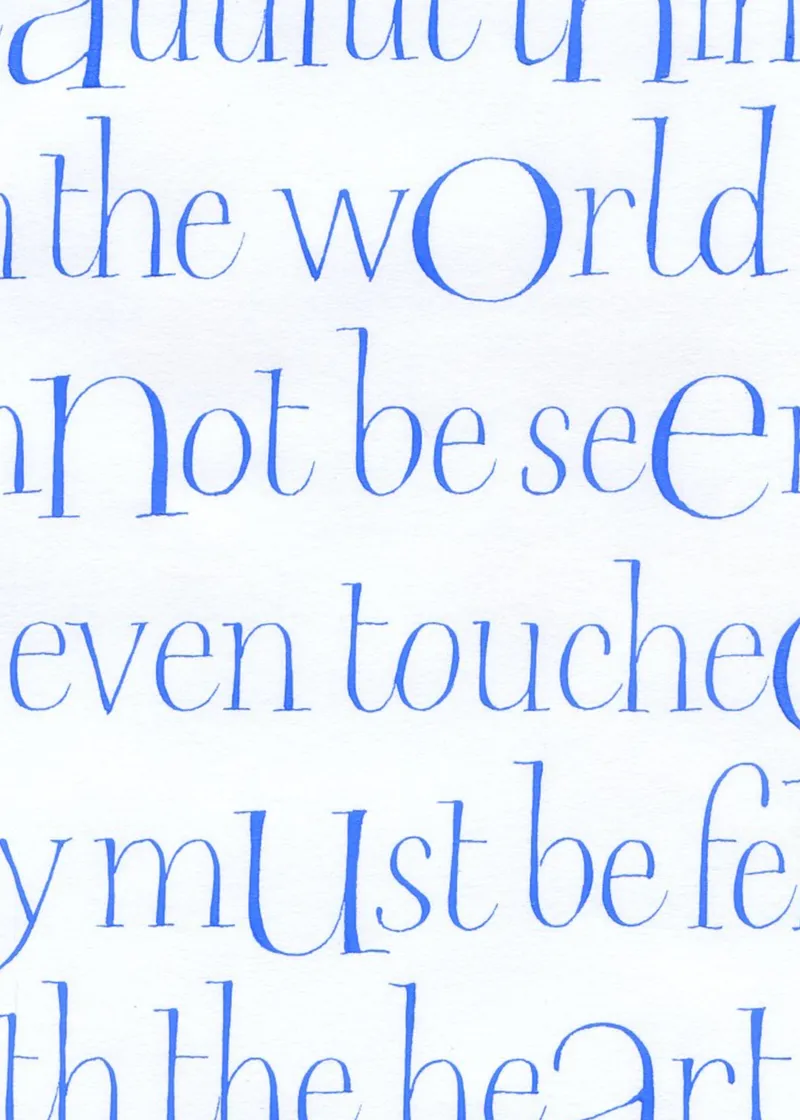 eautiful thin
n the world
nnot be seen
even touched
y must be fel
th the heart